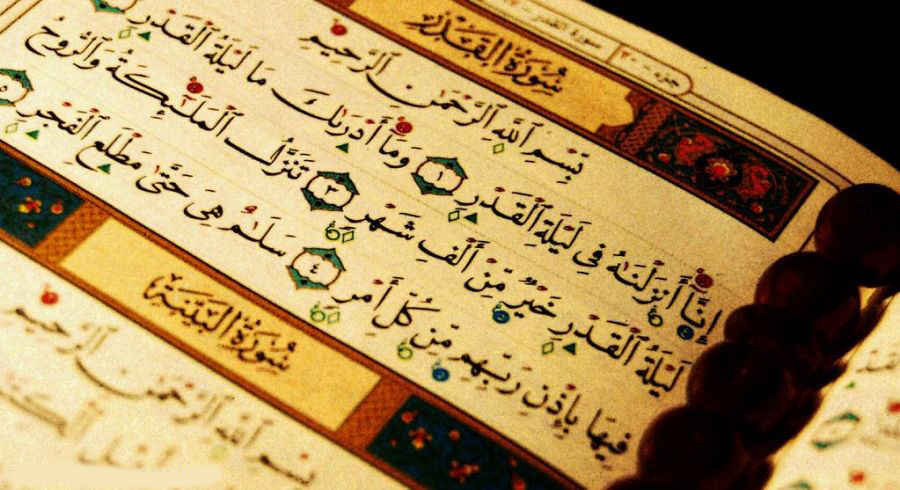 جزء - ٣٠ سورة القدر
سُورَةُ الْقَدْرِ
بِسْمِ ٱللَّهِ ٱلرَّحْمَٰنِ ٱلرَّحِيمِ
إِنَّآ أَنزَلْنَٰهُ فِى لَيْلَةِ ٱلْقَدْرِ ١ وَمَآ أَدْرَىٰكَ مَا لَيْلَةُ ٱلْقَدْرِ
لَيْلَةُ ٱلْقَدْرِ خَيْرٌ مِّنْ أَلْفِ شَهْرٍ ٣ تَنَزَّلُ ٱلْمَلَٰٓئِكَةُ وَٱلرُّوحُ
فِيهَا بِإِذْنِ رَبِّهِم مِّن كُلِّ أَمْرٍ ٤ سَلَٰمٌ هِىَ حَتَّىٰ مَطْلَعِ ٱلْفَجْرِ ٥
سُورَةُ الْبَيِّنَةِ
بِسْمِ ٱللَّهِ ٱلرَّحْمَٰنِ ٱلرَّحِيمِ